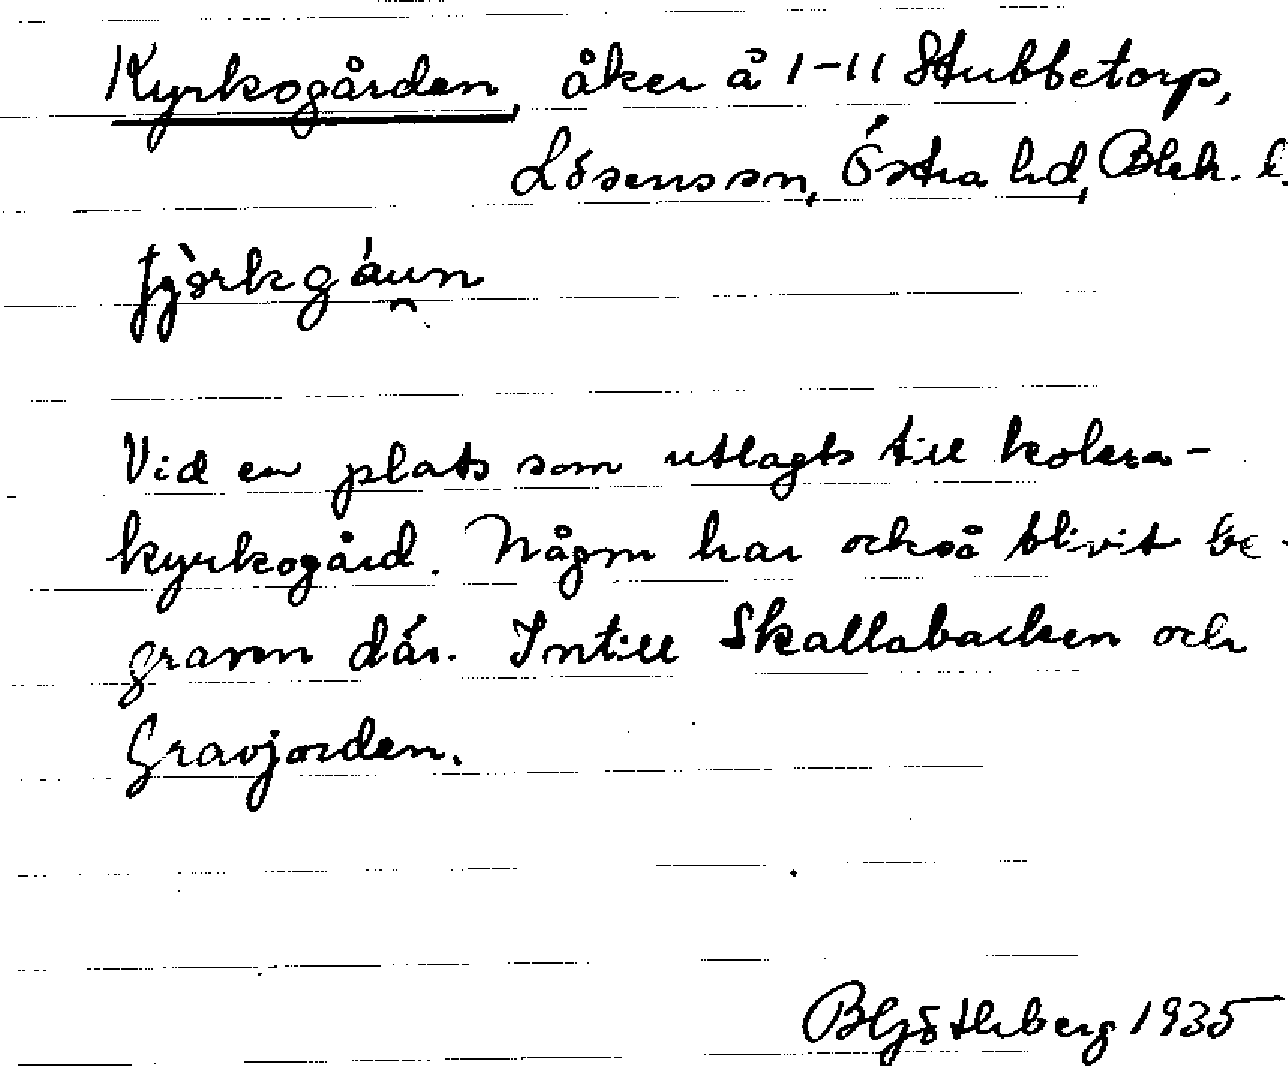 Kyrkogården, åker å 1-11 Stubbetorp,
Lösens sn, Östra hd, Blek. l.
Vid en plats som utlagts till kolera-
kyrkogård. Någon har också blivit be-
graven där. Intill Skallabacken och
Gravjorden.
B Götlberg 1935